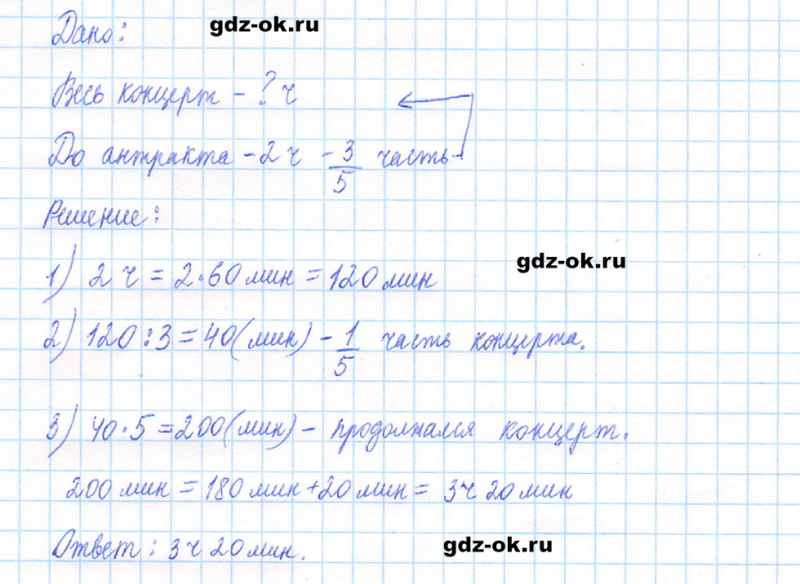 gdz-ok.ru
Дано:
Весь концерт - ? ч
До антракта - 2 ч - 3/5 часть
Решение:
gdz-ok.ru
1) 2 ч = 2·60 мин = 120 мин
2) 120 : 3 = 40 (мин) - 1/5 часть концерта.
3) 40·5 = 200 (мин) - продолжался концерт.
200 мин = 180 мин + 20 мин = 3 ч 20 мин
Ответ: 3 ч 20 мин.
gdz-ok.ru